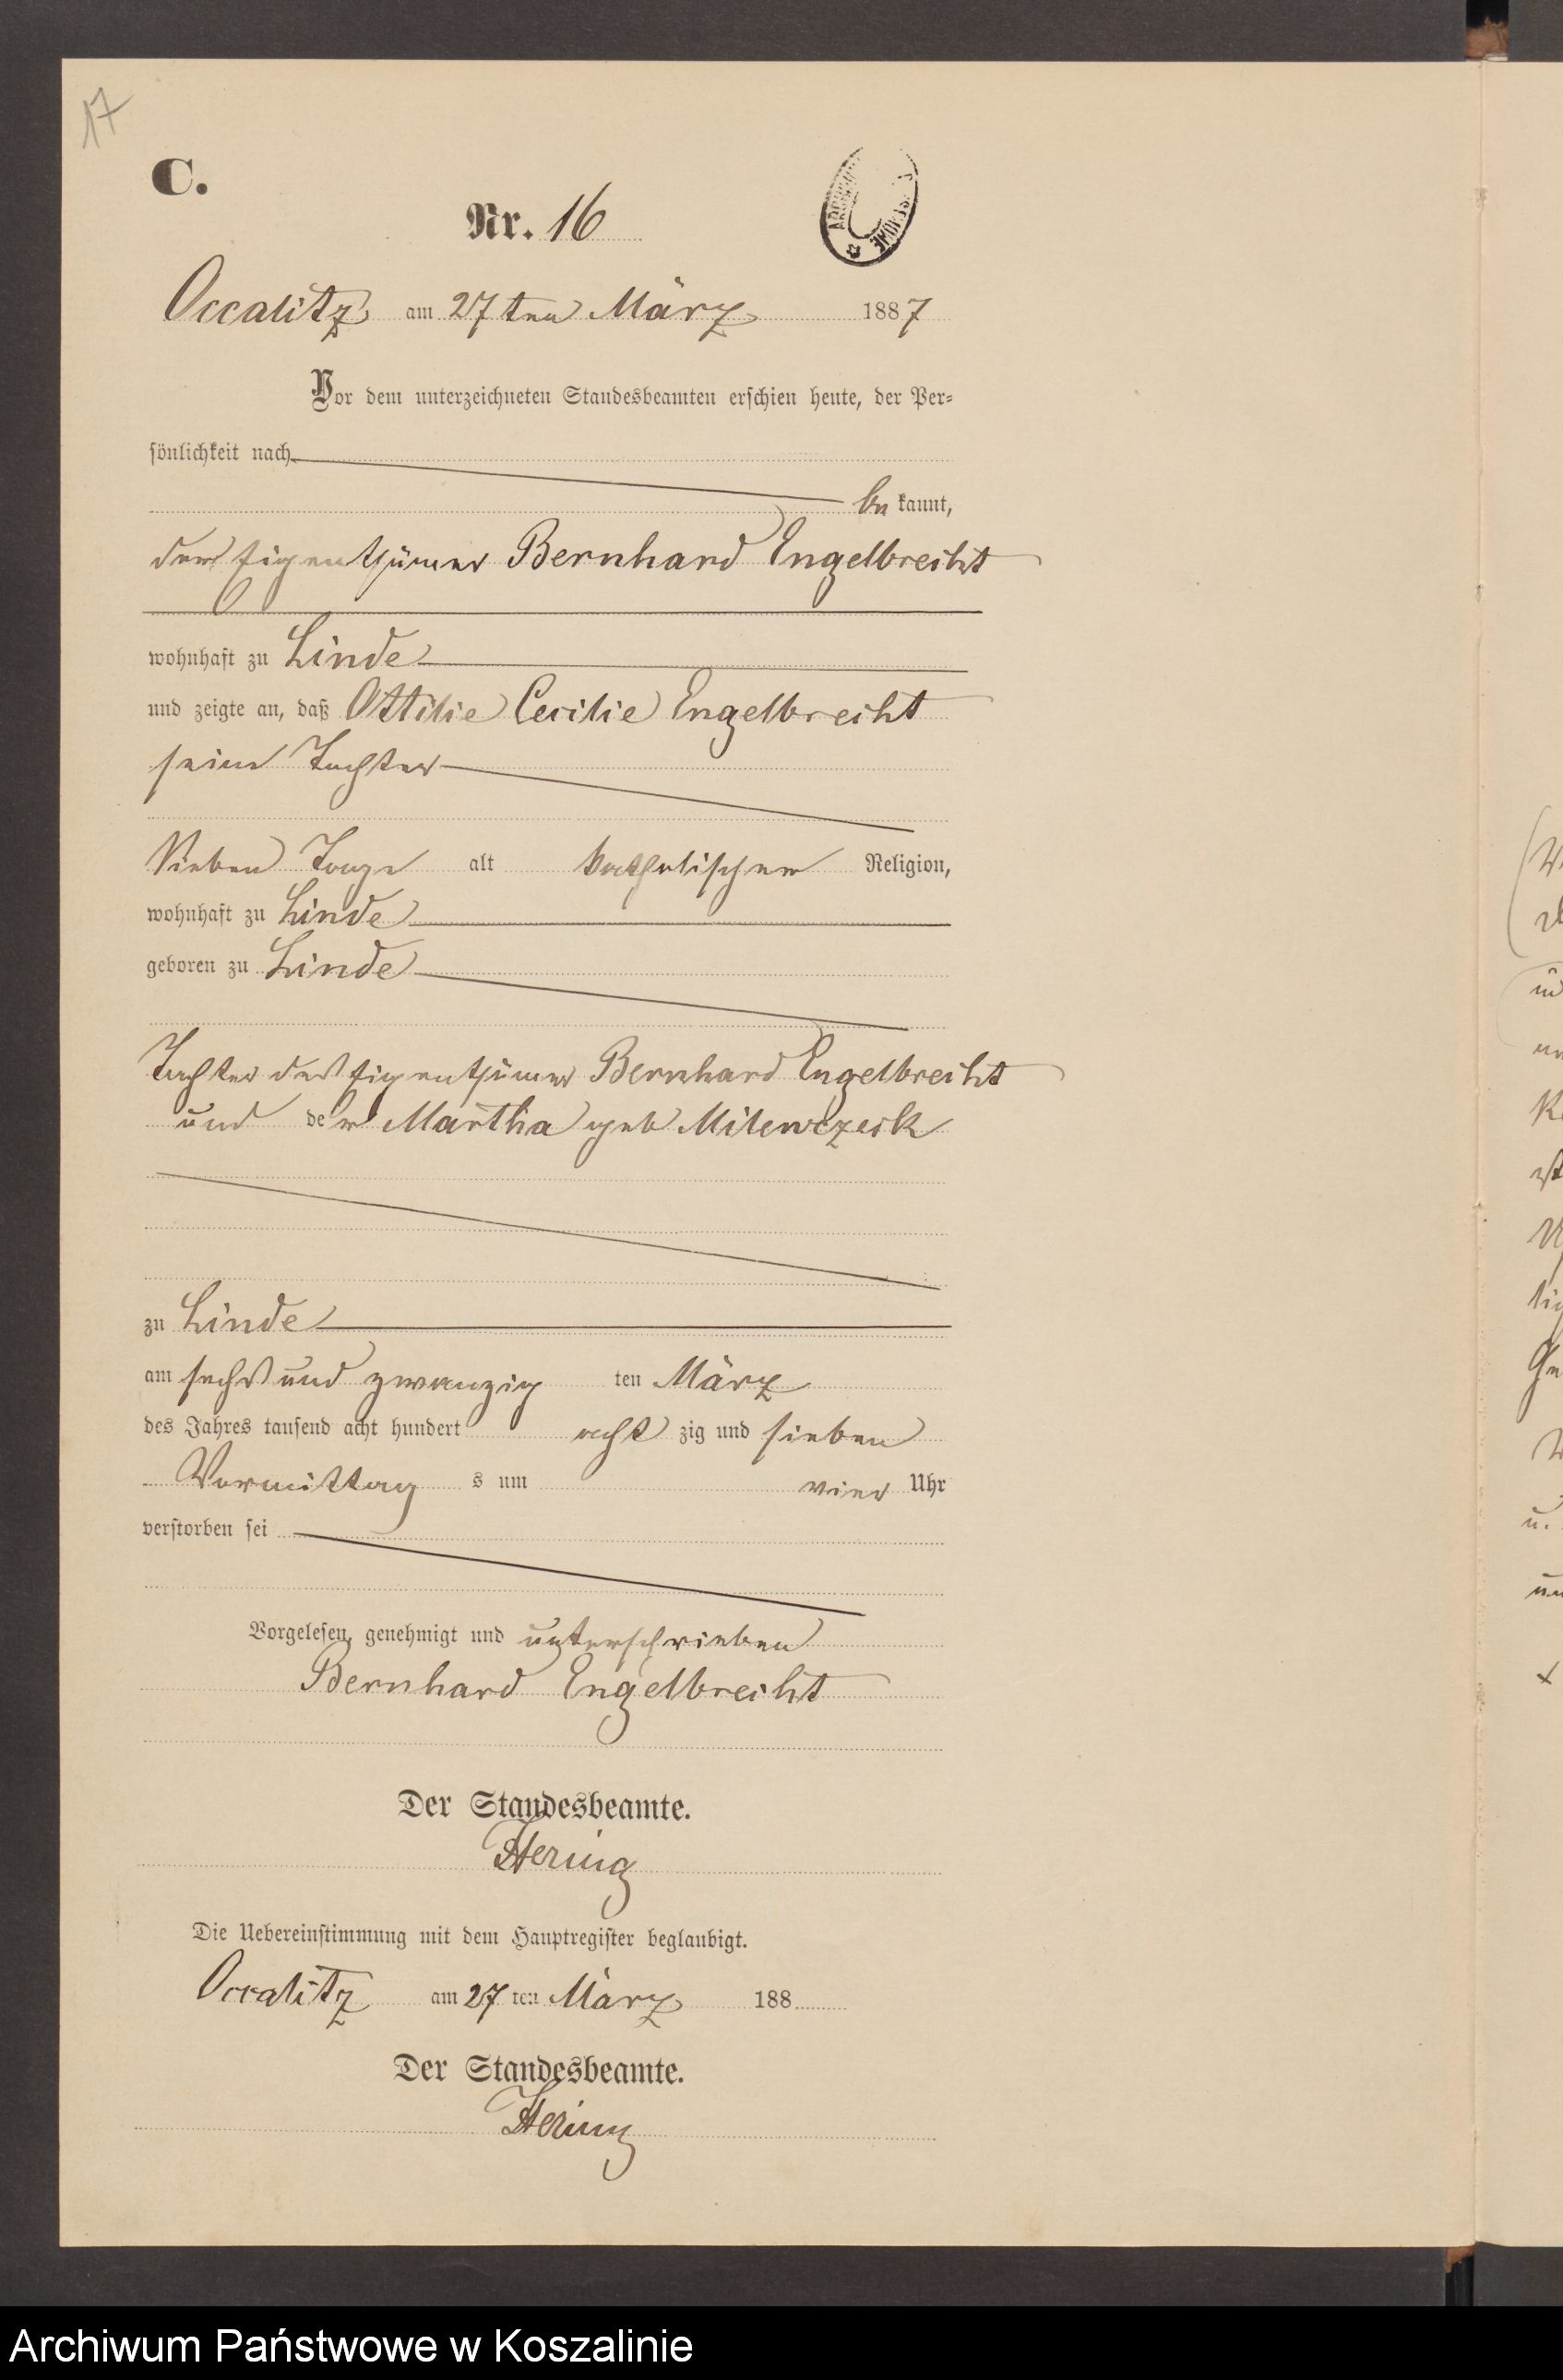 17
C.
Nr. 16
Occalitz am 27ten März 1887
Vor dem unterzeichneten Standesbeamten erschien heute, der Per-
sönlichkeit nach
be kannt,
der Eigenthümer Bernhard Engelbrecht
wohnhaft zu Linde
und zeigte an, daß Ottilie Cecilie Engelbrecht
seine Tochter
Sieben Tage alt katholischer Religion,
wohnhaft zu Linde
geboren zu Linde
Tochter des Eigenthümer Bernhard Engelbrecht
und der Martha geb Milewczeck
zu Linde
am sechs und zwanzig ten März
des Jahres tausend acht hundert acht zig und sieben
Vormittag s um vier Uhr
verstorben sei
Vorgelesen, genehmigt und unterschrieben
Bernhard Engelbrecht
Der Standesbeamte.
Hering
Die Uebereinstimmung mit dem Hauptregister beglaubigt.
Occalitz am 27 ten März 188
Der Standesbeamte.
Hering
Archiwum Państwowe w Koszalinie